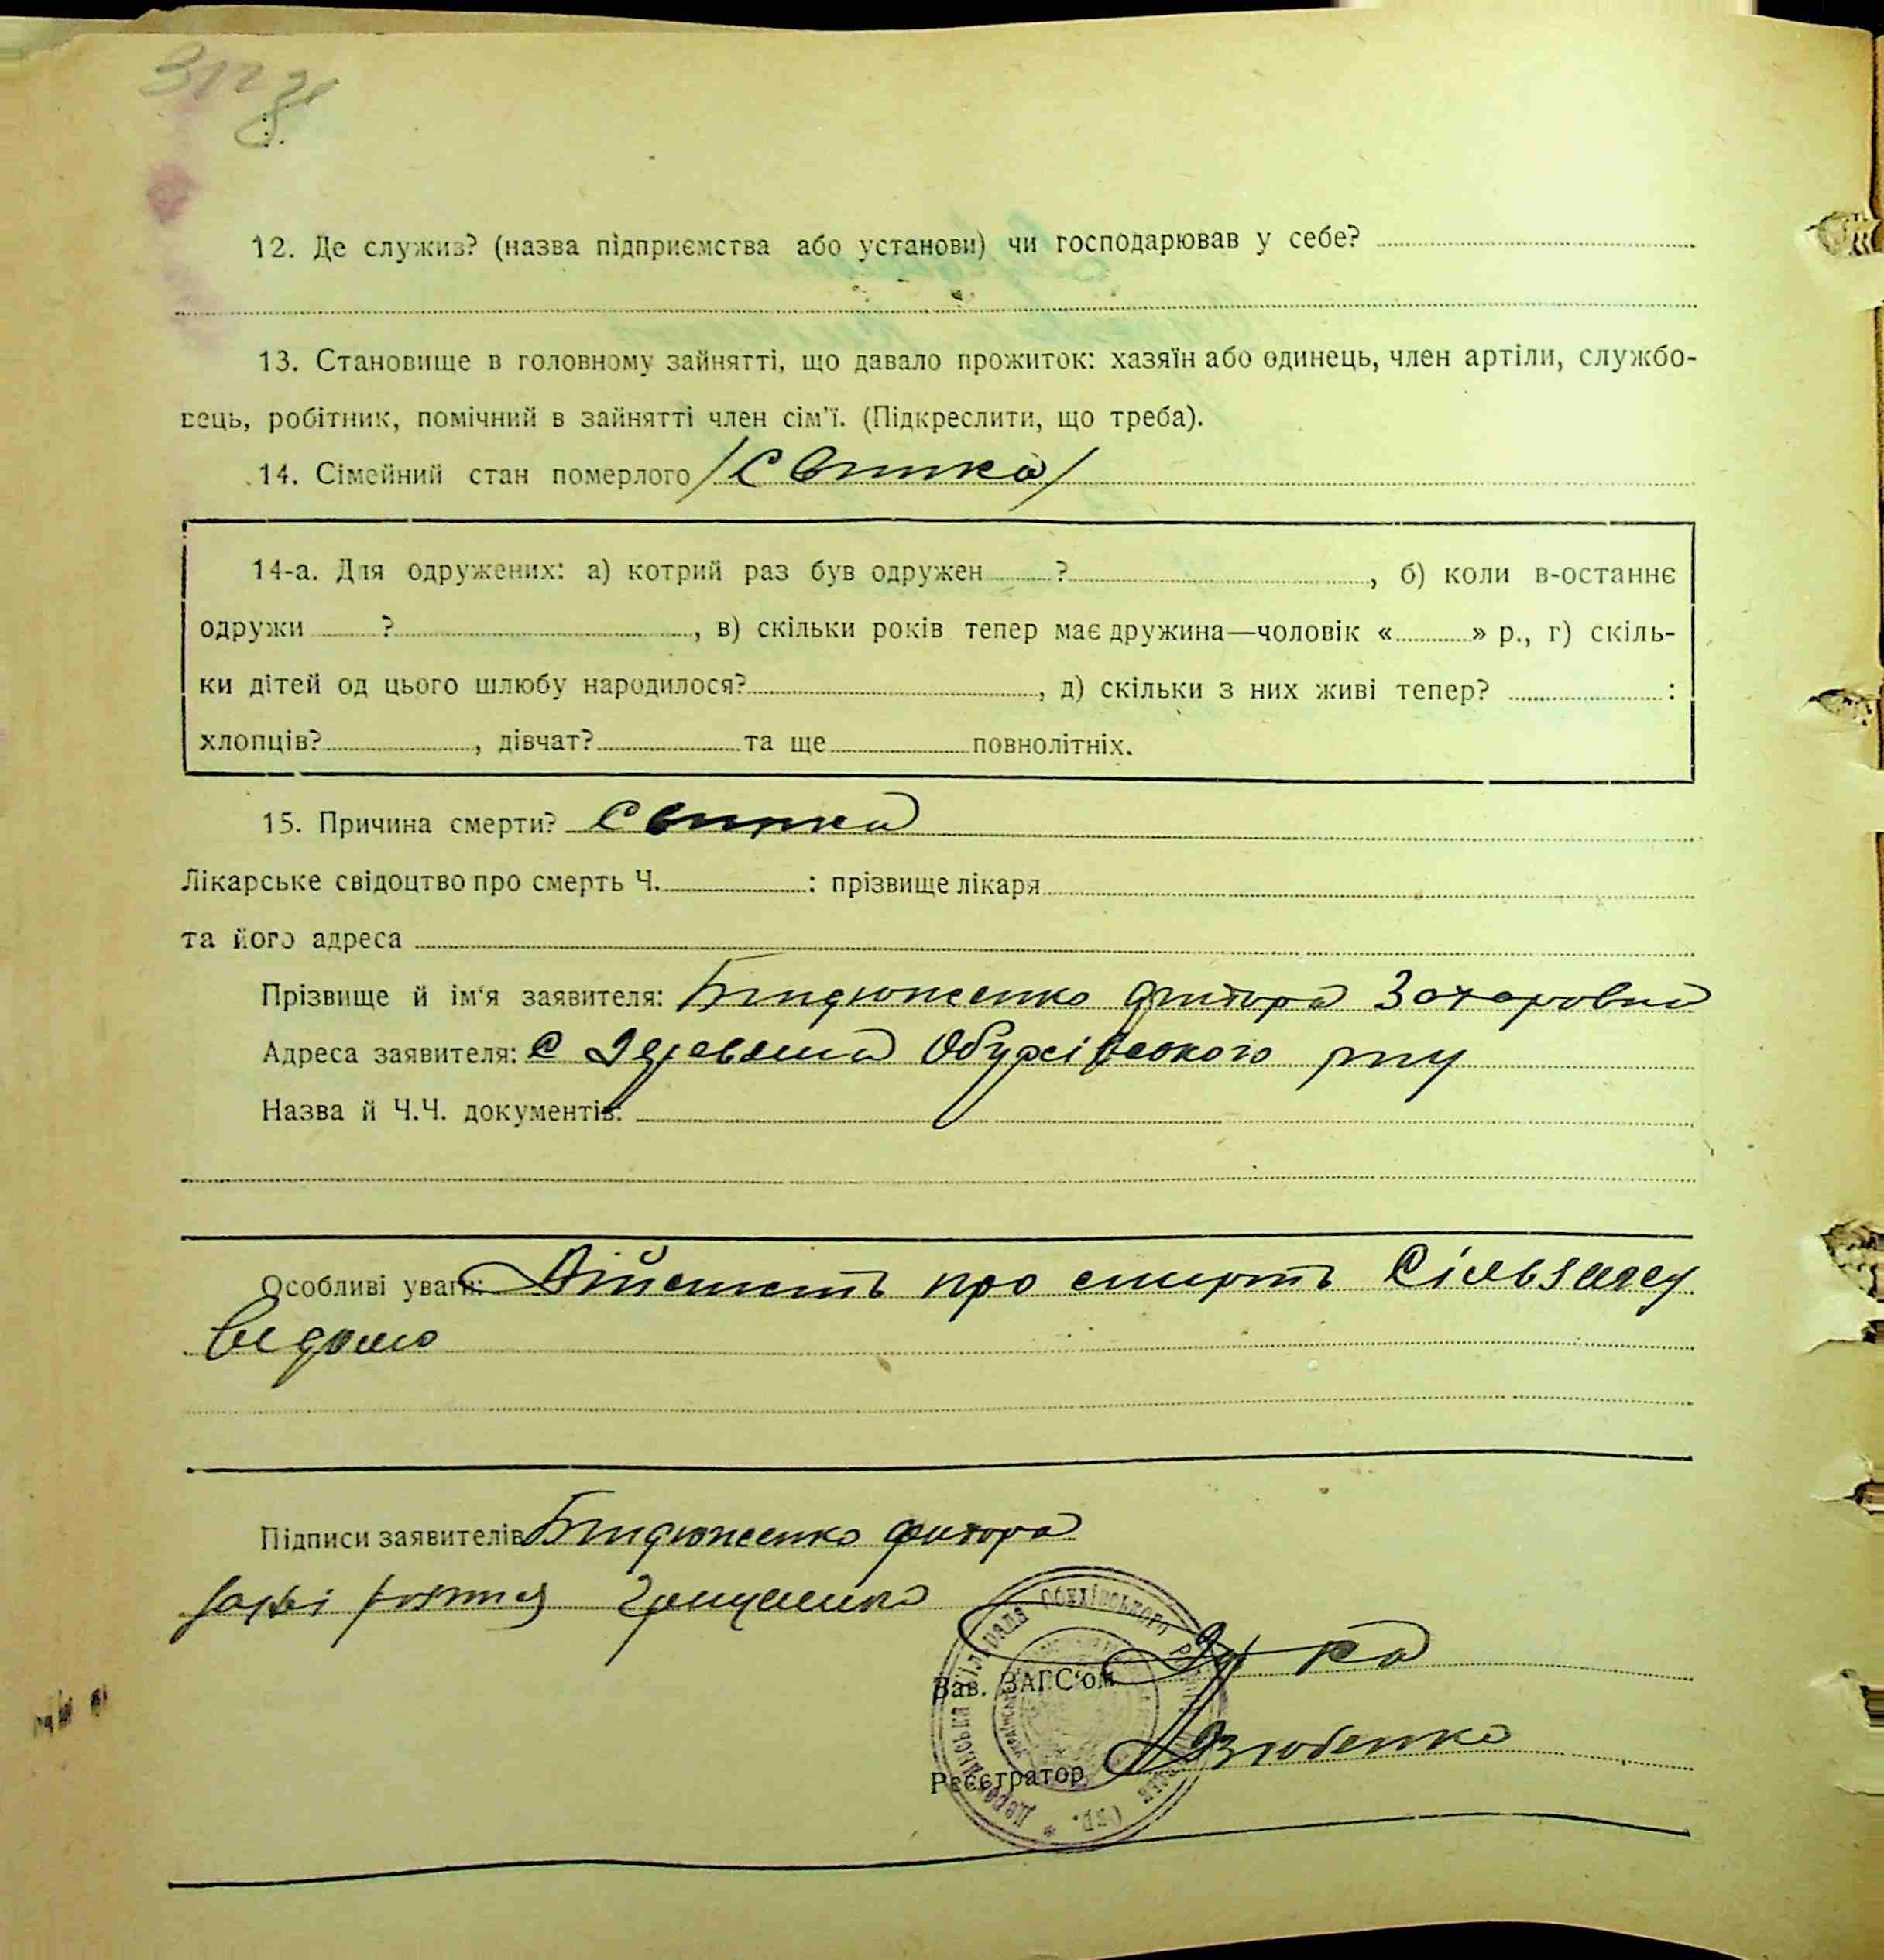 12. Де служив? (назва підприємства або установи) чи господарював у себе?
13. Становище в головному зайнятті, що давало прожиток: хазяїн або одинець, член артіли, службо-
вець, робітник, помічний в зайнятті член сім'ї. (Підкреслити, що треба).
14. Сімейний стан померлого
14-а. Для одружених: а) котрий раз був одружен ? , б) коли в-останнє
одружи ? , в) скільки років тепер має дружина—чоловік « » р., г) скіль-
ки дітей од цього шлюбу народилося? , д) скільки з них живі тепер? :
хлопців? , дівчат? та ще повнолітніх.
15. Причина смерти?
Лікарське свідоцтво про смерть Ч. : прізвище лікаря
та його адреса
Прізвище й ім'я заявителя: Захаровна
Адреса заявителя: С Деревяна Обухівського р-ну
Назва й Ч.Ч. документів:
Особливі уваги: Дійсність про смерть Сільзагсу
Ведомо
Підписи заявителів
Грищенко
Деревянська сільрада Обухівського
Зав. ЗАГС'ом
Реєстратор Дзюбенко